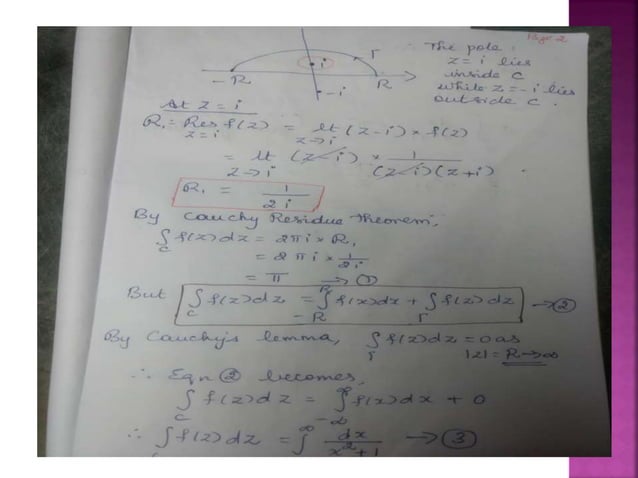 Page 2
∴ The pole
z = i lies
inside C
while z = -i lies
outside C.
Γ
i
-R
R
-i
At z = i
R₁ = Res f(z) = lt (z-i) × f(z)
z=i z→i
= lt (z-i) × 1/((z-i)(z+i))
z→i
R₁ = 1/2i
By Cauchy Residue Theorem,
∫_C f(z)dz = 2πi × R₁
= 2πi × 1/2i
= π → ①
But ∫_C f(z)dz = ∫_{-R}^{R} f(x)dx + ∫_Γ f(z)dz → ②
By Cauchy's lemma, ∫_Γ f(z)dz = 0 as
|z| = R→∞
∴ Eqn ② becomes,
∫_C f(z)dz = ∫_{-∞}^{∞} f(x)dx + 0
∴ ∫f(z)dz = ∫^∞ dx/(x²+1) → ③